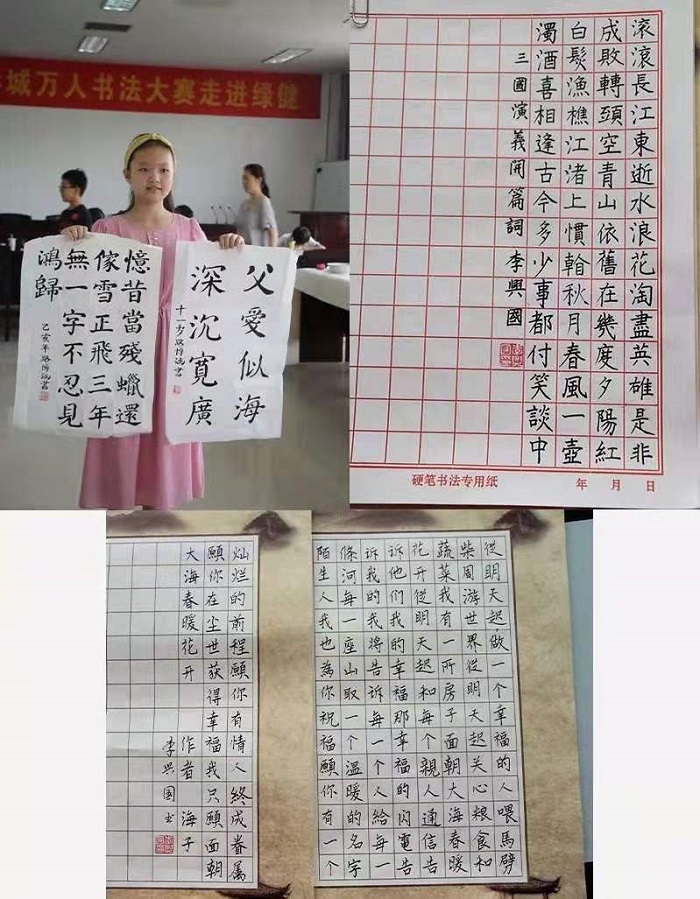 城万人书法大赛走进绿健
憶昔當殘蠟還
傢雪正飛三年
無一字不忍見
鴻歸
父愛似海
深沉寬廣
滚滚長江東逝水浪花淘盡英雄是非
成敗轉頭空青山依舊在幾度夕陽紅
白髮漁樵江渚上慣翰秋月春風一壺
濁酒喜相逢古今多少事都付笑談中
三國演義開篇詞 李興國
硬笔书法专用纸 年 月 日
從明天起做一个幸福的人喂馬劈
柴周游世界從明天起关心粮食和
蔬菜我有一所房子面朝大海春暖
花开從明天起和每个親人通信告
诉他们我的幸福那幸福的闪電告
诉我的我将告诉每一个人给每一
條河每一座山取一个温暖的名字
陌生人我也為你祝福願你有一个
灿烂的前程願你有情人終成眷属
願你在尘世获得幸福我只願面朝
大海春暖花开 作者 海子
李兴国书